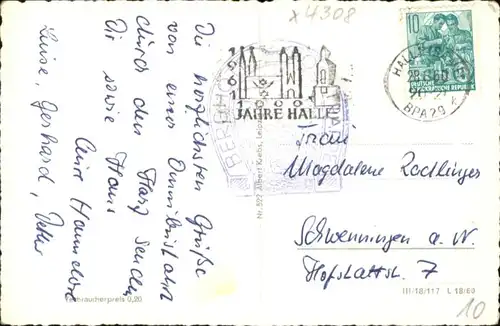 x 4308
Die herzlichsten Grüße
von einer Omnibusfahrt
durch den Harz senden
Dir sowie Hans
Eure Hannelore
Luise, Gerhard, Peter
Verbraucherpreis 0,20
Nr. 522 Albert Krebs,
961
1961
1000
JAHRE HALLE
BERGHO
10
DEUTSCHE
DEMOKRATISCHE REPUBLIK
HALLE
BPA29 k
Frau
Magdalene Rodlinger
Schwenningen a. N.
Hofstattstr. 7
III/18/117 L 18/60
10